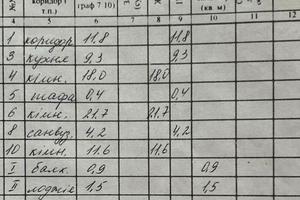 коридор і т.п.) (граф 7 10) (кв м)
4 5 6 7 8 9 10 11 12
1 коридор 11,8 11,8
3 кухня 9,3 9,3
4 кімн. 18,0 18,0
5 шафа 0,4 0,4
6 кімн. 21,7 21,7
8 санвуз. 4,2 4,2
10 кімн. 11,6 11,6
I балк. 0,9 0,9
II лоджія 1,5 1,5